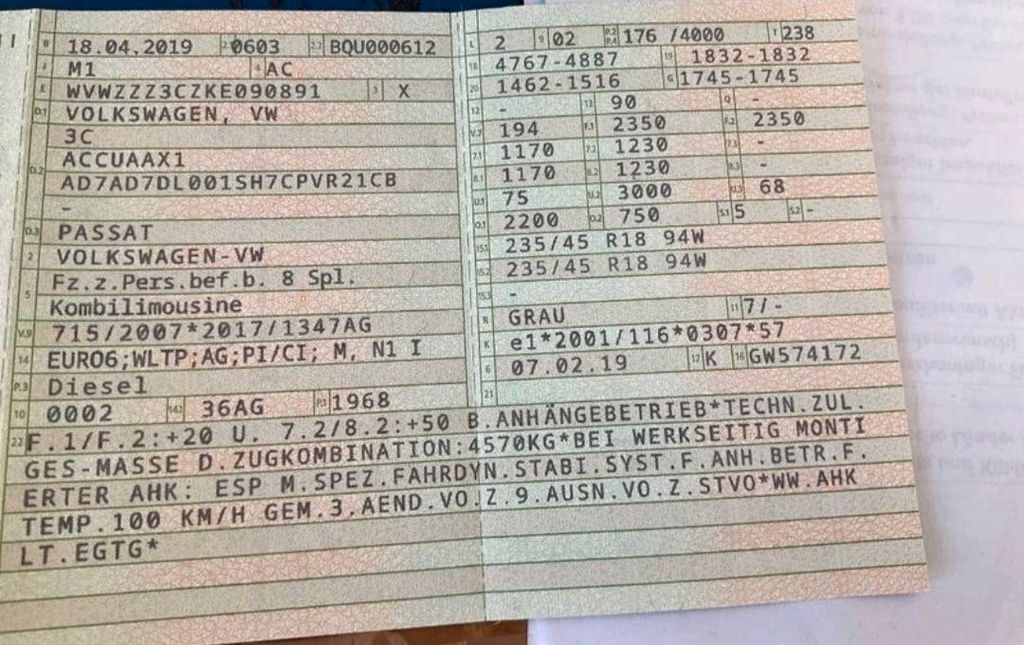 B 18.04.2019 2.1 0603 2.2 BQU000612
J M1 4 AC
E WVWZZZ3CZKE090891 3 X
D.1 VOLKSWAGEN, VW
3C
D.2 ACCUAAX1
AD7AD7DL001SH7CPVR21CB
-
D.3 PASSAT
2 VOLKSWAGEN-VW
5 Fz.z.Pers.bef.b. 8 Spl.
Kombilimousine
V.9 715/2007*2017/1347AG
14 EURO6;WLTP;AG;PI/CI; M, N1 I
P.3 Diesel
10 0002 14.1 36AG P.1 1968
L 2 9 02 P.2 P.4 176 /4000 T 238
18 4767-4887 19 1832-1832
20 1462-1516 G 1745-1745
12 - 13 90 Q -
V.7 194 F.1 2350 F.2 2350
7.1 1170 7.2 1230 7.3 -
8.1 1170 8.2 1230 8.3 -
U.1 75 U.2 3000 U.3 68
O.1 2200 O.2 750 S.1 5 S.2 -
15.1 235/45 R18 94W
15.2 235/45 R18 94W
15.3 -
R GRAU 11 7/-
K e1*2001/116*0307*57
6 07.02.19 17 K 16 GW574172
21
22 F.1/F.2:+20 U. 7.2/8.2:+50 B.ANHÄNGEBETRIEB*TECHN.ZUL.
GES-MASSE D.ZUGKOMBINATION:4570KG*BEI WERKSEITIG MONTI
ERTER AHK: ESP M.SPEZ.FAHRDYN.STABI.SYST.F.ANH.BETR.F.
TEMP.100 KM/H GEM.3.AEND.VO.Z.9.AUSN.VO.Z.STVO*WW.AHK
LT.EGTG*